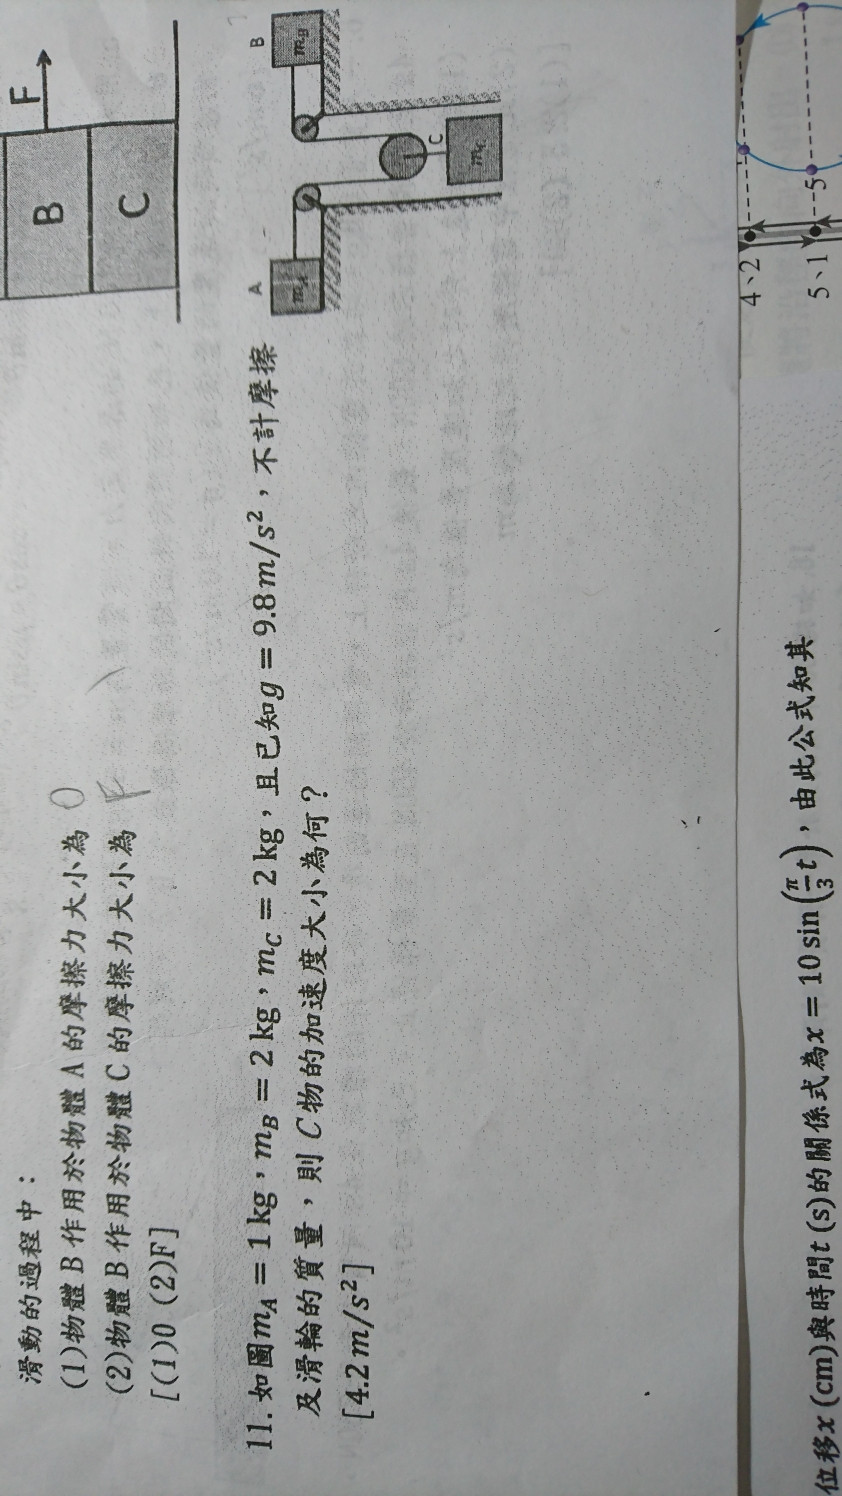 F
B
C
滑動的過程中：
(1)物體B作用於物體A的摩擦力大小為 0
(2)物體B作用於物體C的摩擦力大小為 F
[(1)0 (2)F]
A
B
C
11. 如圖m_A = 1 kg，m_B = 2 kg，m_C = 2 kg，且已知g = 9.8 m/s²，不計摩擦
及滑輪的質量，則C物的加速度大小為何？
[4.2 m/s²]
4、2
5、1
5
位移x (cm)與時間t (s)的關係式為x = 10 sin(π/3 t)，由此公式知其